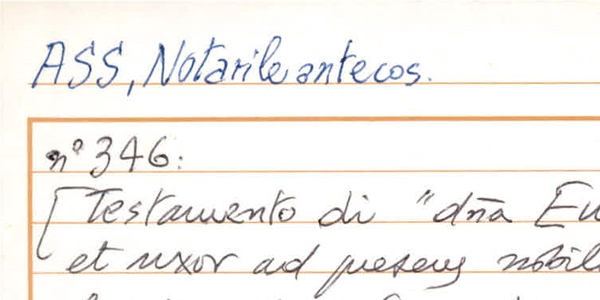 ASS, Notarile antecos.
n° 346:
[Testamento di "dña Eu
et uxor ad presens nobil